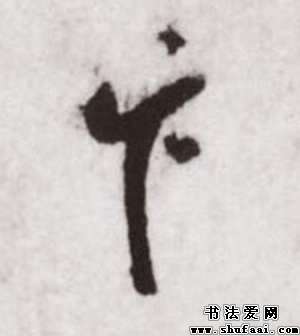 卞
书法爱网
www.shufaai.com